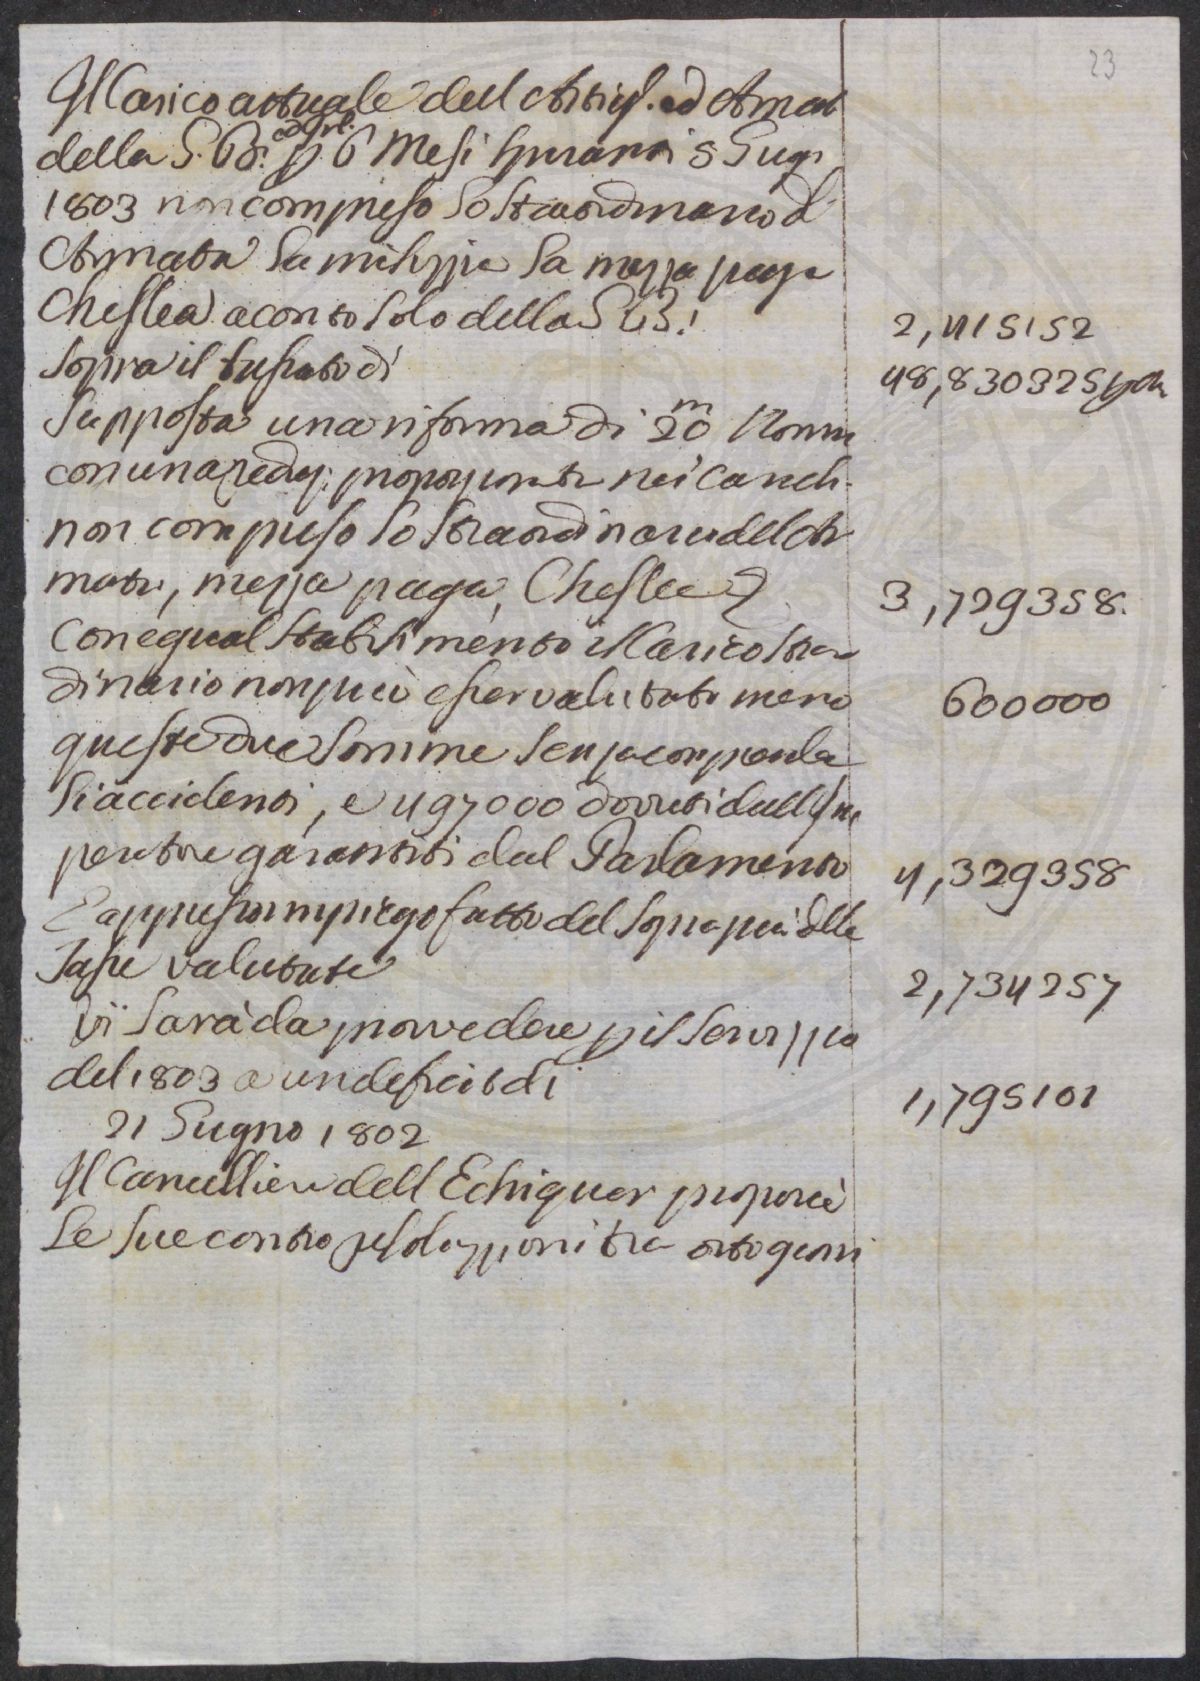 23
Il Carico attuale dell Artigl. ed Armat
della G. B. ed Irl. p. 6 Mesi spiranti 5 Giug.
1803 non compreso lo straordinario d'
Armata la milizzia la mezza paga
Cheslea a conto solo della G B. 2,415152
Sopra il di 48,830325
Supposta una riforma di 20 m Uomini
con una reduz. proporzionata nei Carichi
non compreso lo straordinario del Ar
mata, mezza paga, Cheslea 3,729358.
Con egual stabilimento il Carico stra
dinario non può esser valutato meno 600000
queste due somme senza comprender
li accidenti, e 497000 dovuti dall Im
peratore garantiti dal Parlamento 4,329358
E appresso impiego fatto del sopra più delle
Tasse valutate 2,734257
Vi sarà da provvedere p il Servizzio
del 1803 a un deficit di 1,795101
21 Giugno 1802
Il Cancelliere dell Echiquer proporrà
le sue contro risoluzzioni tra otto giorni